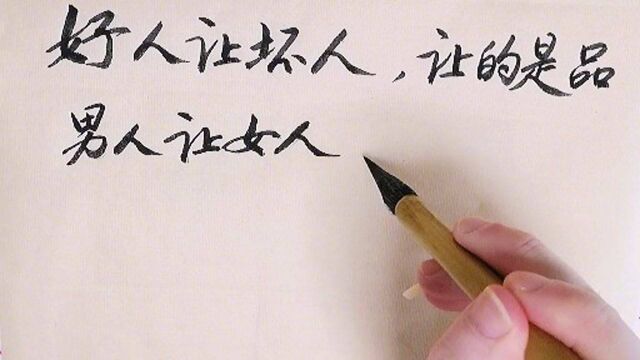 好人让坏人,让的是品
男人让女人